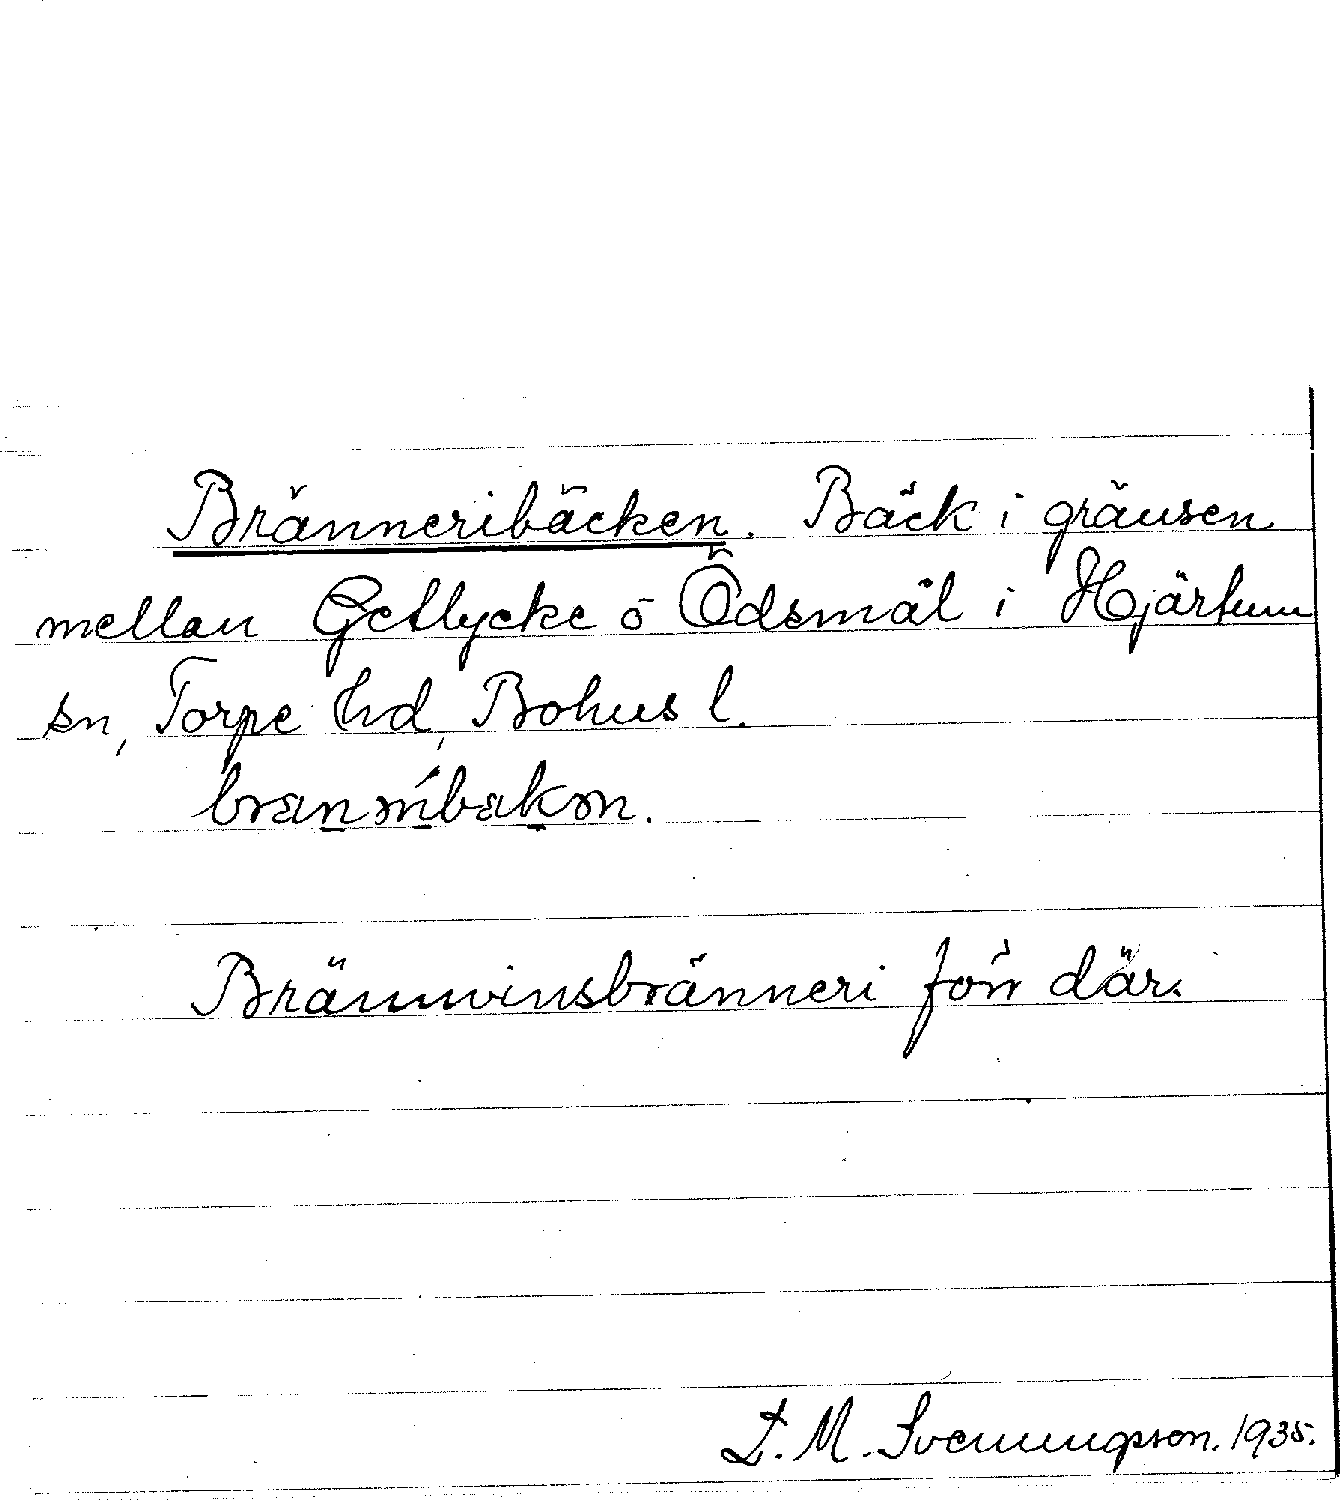 Bränneribäcken. Bäck i gränsen
mellan Getlycke o Ödsmål i Hjärtum
sn, Torpe hd, Bohus l.
Brännvinsbränneri förr där.
D. M. Svenungsson. 1935.